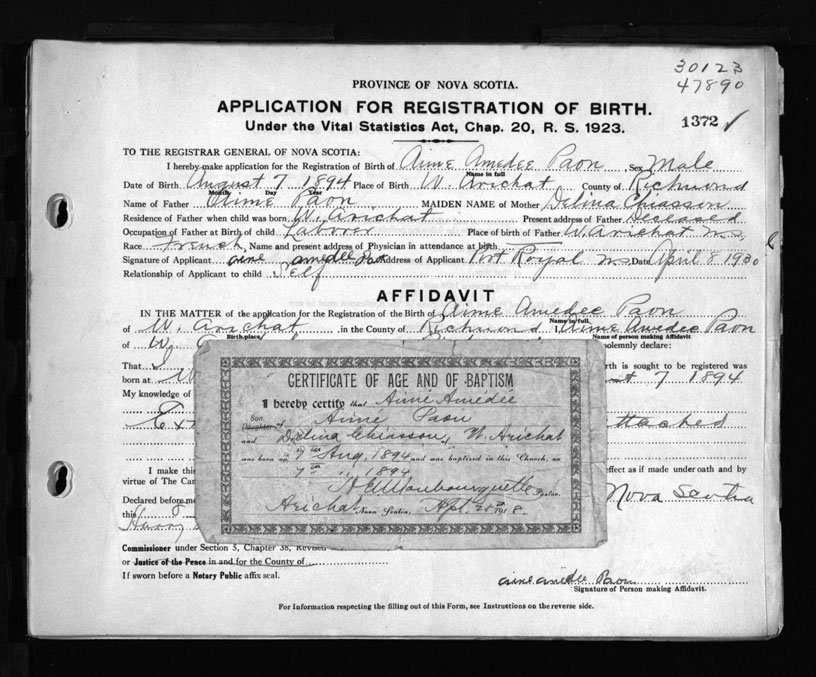 30123
47890
PROVINCE OF NOVA SCOTIA.
APPLICATION FOR REGISTRATION OF BIRTH.
Under the Vital Statistics Act, Chap. 20, R. S. 1923.
1372
TO THE REGISTRAR GENERAL OF NOVA SCOTIA:
I hereby make application for the Registration of Birth of Aime Amedee Paon Sex Male
Name in full
Date of Birth August 7 1894 Place of Birth W. Arichat County of Richmond
Month Day Year
Name of Father Aime Paon MAIDEN NAME of Mother Delina Chiasson
Residence of Father when child was born W. Arichat Present address of Father Deceased
Occupation of Father at Birth of child Laborer Place of birth of Father W. Arichat N.S.
Race French Name and present address of Physician in attendance at birth
Signature of Applicant aime amedee Paon Address of Applicant Port Royal N.S. Date April 8 1930
Relationship of Applicant to child Self
AFFIDAVIT
IN THE MATTER of the application for the Registration of the Birth of Aime Amedee Paon
Name in full.
of W. Arichat in the County of Richmond I, Aime Amedee Paon
Birth place Name of person making Affidavit
of W. solemnly declare:
That I birth is sought to be registered was
born at W 7 1894
My knowledge of
attached
I make this effect as if made under oath and by
virtue of The Can Nova Scotia
Declared before me
this 8
Commissioner under Section 5, Chapter 38, Revised
or Justice of the Peace in and for the County of
If sworn before a Notary Public affix seal.
aime amedee Paon
Signature of Person making Affidavit.
For Information respecting the filling out of this Form, see Instructions on the reverse side.
CERTIFICATE OF AGE AND OF BAPTISM
I hereby certify that Aimé Amédée
Son
Daughter of Aimé Paon
and Delina Chiasson, W. Arichat
was born on 7th Aug. 1894 and was baptized in this Church, on
7th " 1894
Pastor.
Arichat Nova Scotia, Apl. 28th 1918.